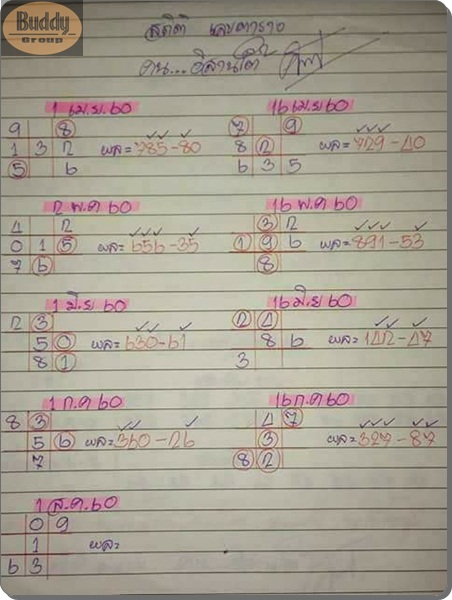 Buddy
Group
สถิติ เลขตาราง
คน... อีสานใต้
1 เม.ย 60
9 8
1 3 2 ผล = 785-80
5 6
16 เม.ย 60
7 9
8 2 ผล = 729-40
6 3 5
2 พ.ค 60
4 2
0 1 5 ผล = 656-35
7 6
16 พ.ค 60
3 2
1 9 6 ผล = 891-53
8
1 มิ.ย 60
2 3
5 0 ผล = 630-61
8 1
16 มิ.ย 60
2 4
8 6 ผล = 142-47
3
1 ก.ค 60
8 3
5 6 ผล = 360-26
7
16 ก.ค 60
4 7
3 ผล = 327-87
8 2
1 ส.ค. 60
0 9
1 ผล =
6 3